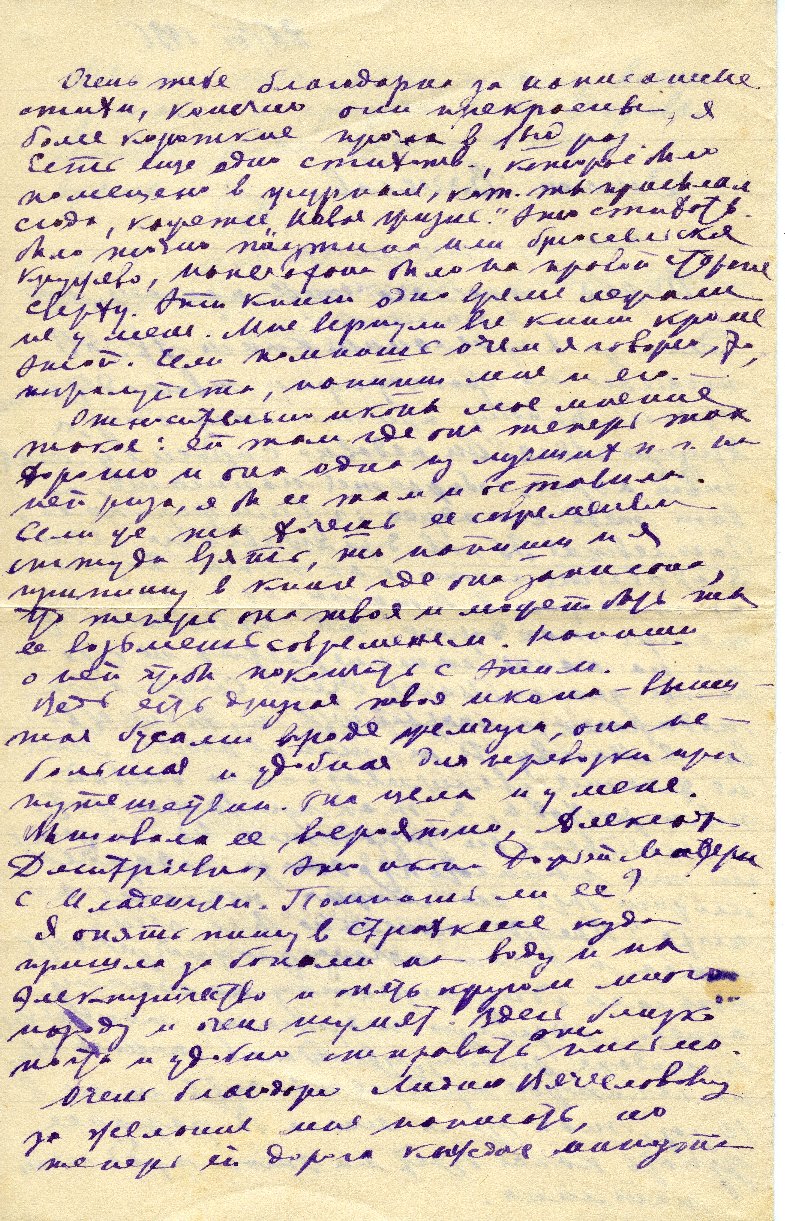 Очень тебе благодарна за написание
стихи, конечно они прекрасны, я
более короткие прочла в
Есть еще одно стихотв., которое было
помещено в журнал, кот. ты присылал
сюда, кажется „Новая жизнь." Это стихотв.
было точно паутина или брюссельское
кружево, напечатано было на правой стороне
сверху. Эти книги одно время лежали
не у меня. Мне вернули все книги кроме
этой. Если помнишь о чем я говорю, то,
пожалуйста, напиши мне и его.
Относительно иконы мое мнение
такое: ей там где она теперь так
хорошо и она одна из лучших и т. на
ней риза, я бы ее там и оставила.
Если же ты хочешь ее современем
оттуда взять, то напиши и я
припишу в книге где она записана,
что теперь она твоя и может быть ты
ее возьмешь современем. Напиши
о ней чтобы покончить с этим.
Здесь есть другая твоя икона – выши–
тая бусами вроде жемчуга, она не–
большая и удобная для перевозки при
путешествии. Она цела и у меня.
Вышивала ее вероятно, Александр
Дмитриевна, это икона Божьей Матери
с Младенцем. Помнишь ли ее?
Я опять пишу в Страхкассе куда
пришла за бонами на воду и на
электричество и опять кругом много
народу и очень шумят. Здесь близко
почта и удобно отправить это письмо.
Очень благодарю Лидию Вячеславовну
за желание мне написать, но
теперь ей дорога каждая минута